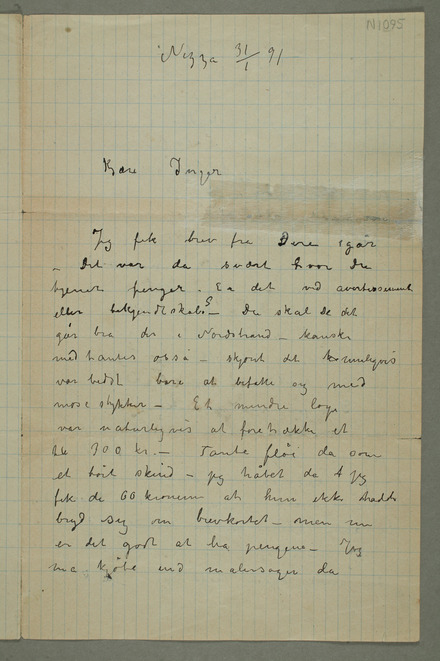 N1095
Nizza 31/1 91
Kjære Inger
Jeg fik brev fra Dere igår
– Det var da svært hvor Du
tjener penger. Er det ved avertissement
eller bekjendtskab? – Du skal se det
går bra der i Nordstrand – kanske
med tanter også – skjønt det
var bedst bare at befatte sig med
mosestykker – Et mindre loge
var naturligvis at foretrække et
til 300 kr. – Tante fløi da som
et skind – jeg håbet da at jeg
fik de 60 kronerne at hun ikke hadde
bryd sig om brevkortet – men nu
er det godt at ha pengene – Jeg
må kjøbe malersager da